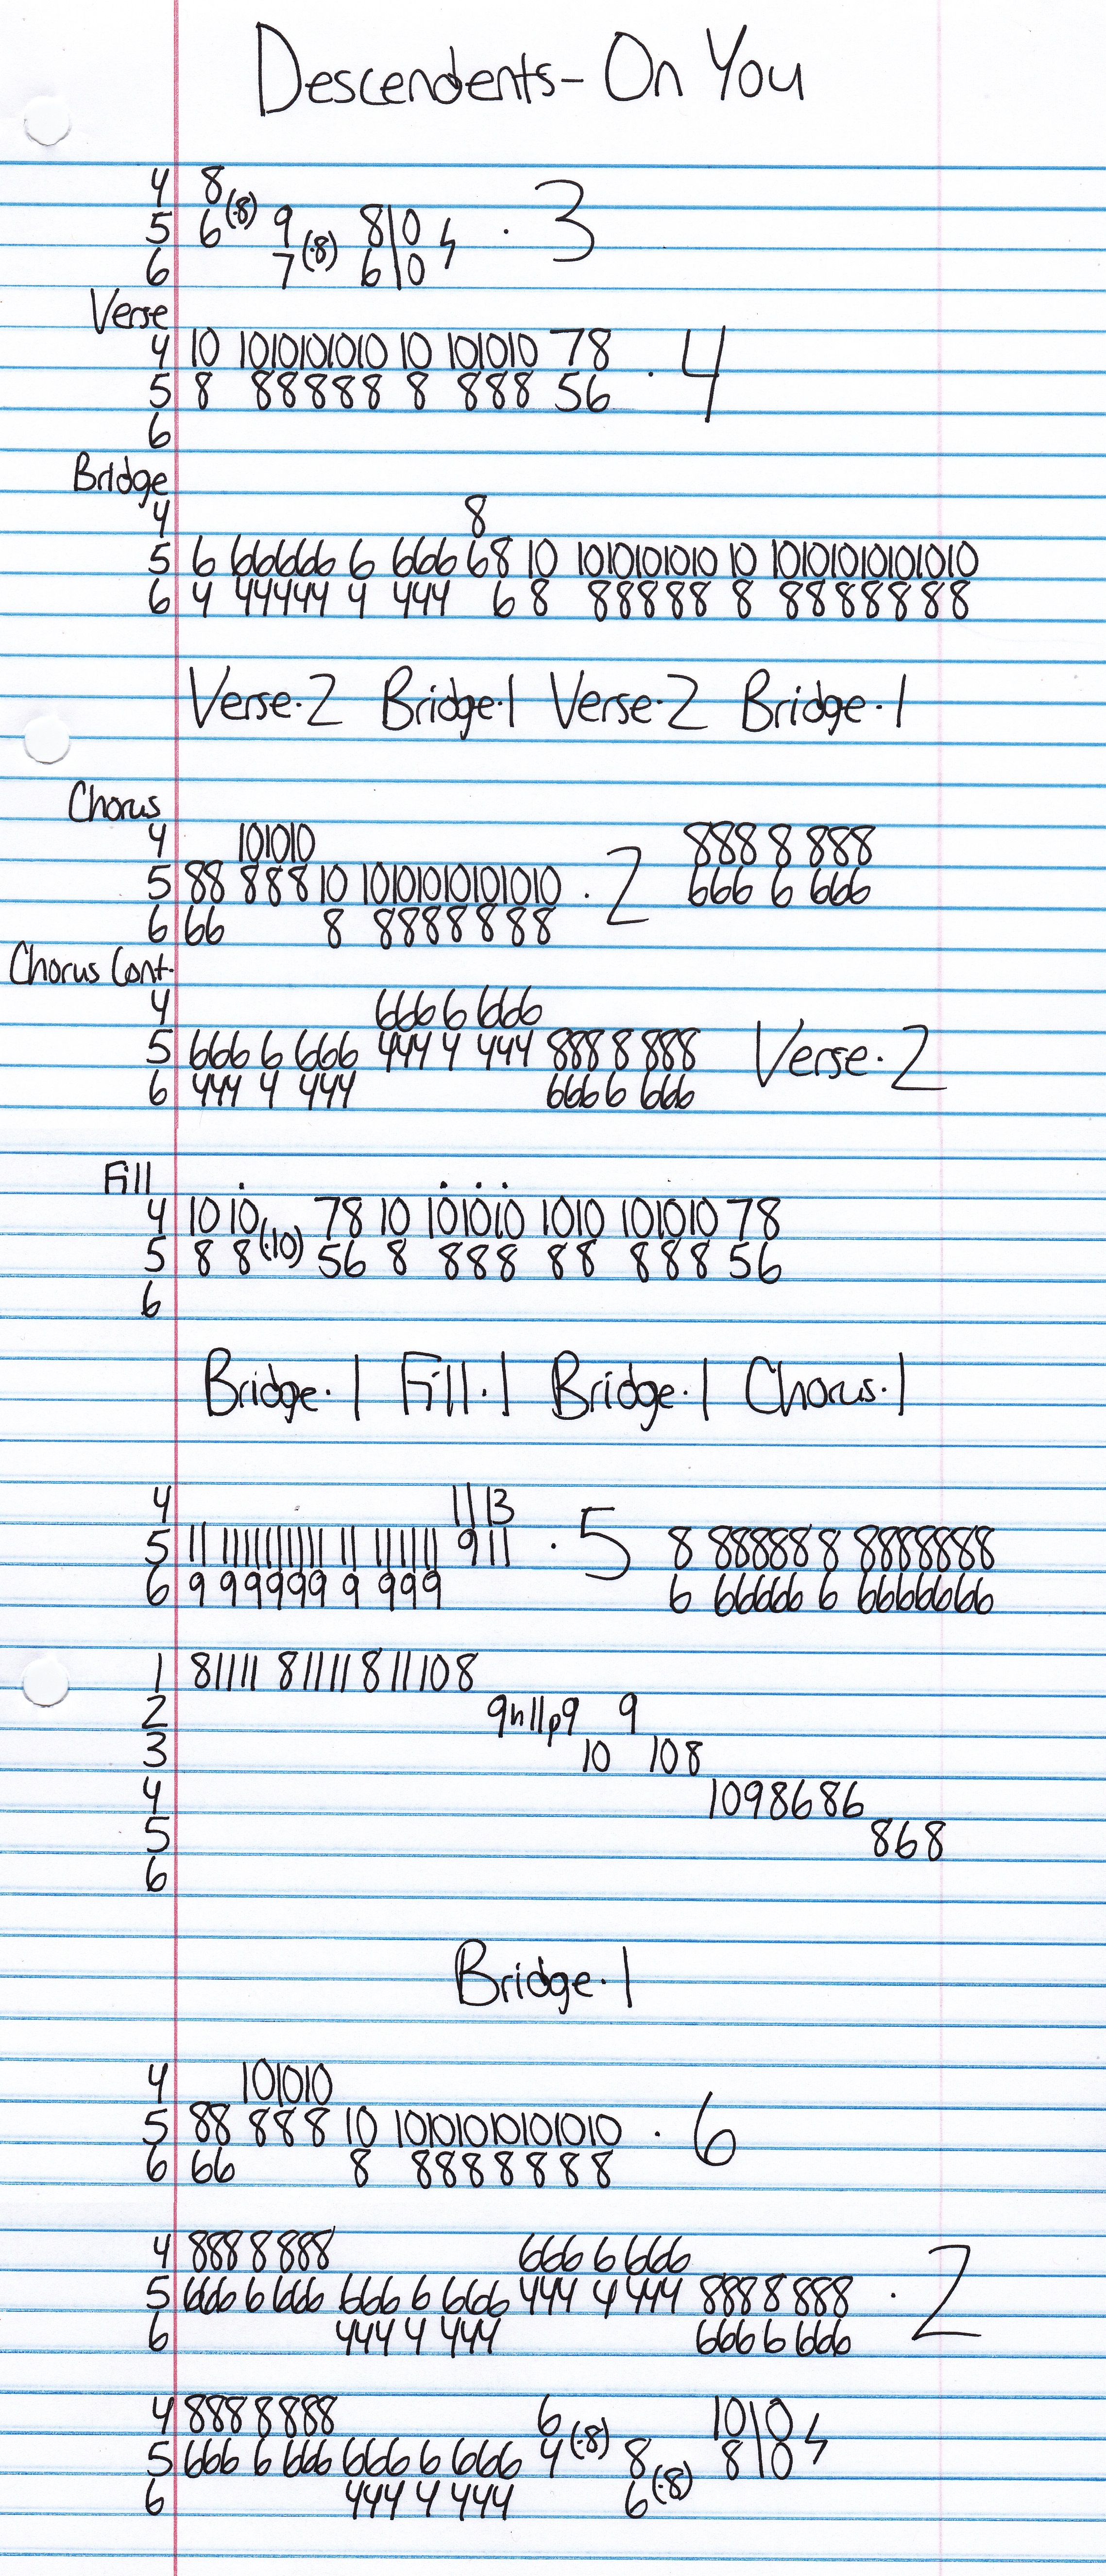 Descendents- On You
4 8
5 6(·8) 9 8\0 ϟ · 3
6 7(·8) 6\0
Verse
4 10 1010101010 10 101010 78
5 8 88888 8 888 56 · 4
6
Bridge
4 8
5 6 66666 6 666 68 10 1010101010 10 10101010101010
6 4 44444 4 444 6 8 88888 8 8888888
Verse·2 Bridge·1 Verse·2 Bridge·1
Chorus
4 101010 888 8 888
5 88 888 10 10101010101010 · 2 666 6 666
6 66 8 8888888
Chorus Cont.
4 666 6 666
5 666 6 666 444 4 444 888 8 888 Verse·2
6 444 4 444 666 6 666
Fill
4 10 10 78 10 101010 1010 101010 78
5 8 8(·10) 56 8 888 88 888 56
6
Bridge·1 Fill·1 Bridge·1 Chorus·1
4 11 13
5 11 1111111111 11 111111 9 11 · 5 8 88888 8 8888888
6 9 99999 9 999 6 66666 6 6666666
1 81111 81111 811108
2 9h11p9 9
3 10 108
4 1098686
5 868
6
Bridge·1
4 101010
5 88 888 10 10101010101010 · 6
6 66 8 8888888
4 888 8 888 666 6 666
5 666 6 666 666 6 666 444 4 444 888 8 888 · 2
6 444 4 444 666 6 666
4 888 8 888 6 10\0
5 666 6 666 666 6 666 4(·8) 8 8\0 ϟ
6 444 4 444 6(·8)